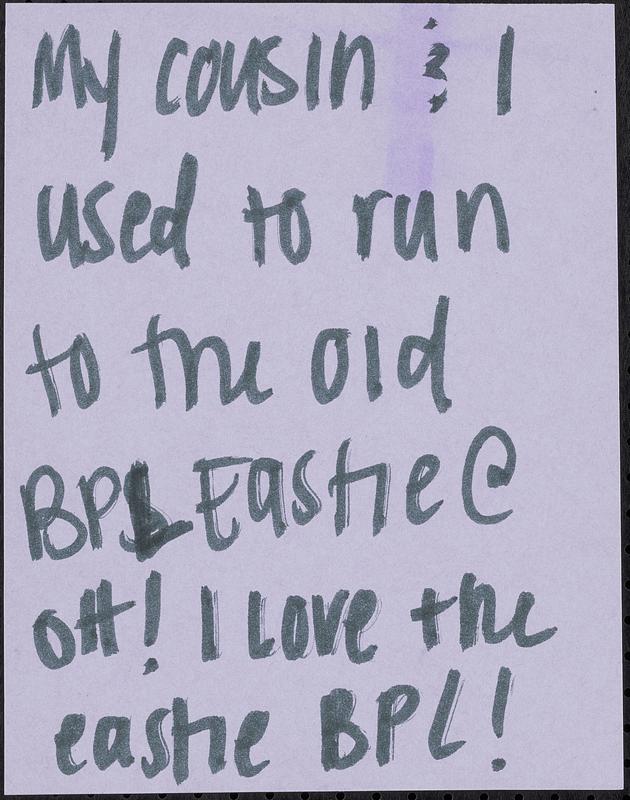 My cousin & I
used to run
to the old
BPL Eastie @
ott! I love the
eastie BPL!